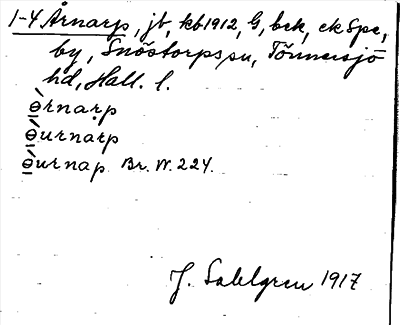 1-4 Årnarp, jb, kb 1912, G, bek, ek Spe,
by, Snöstorps sn, Tönnersjö
hd, Hall. l.
ɵ̀rnarp
ɵ̀urnarp
ɵ̀urnap Br. W. 224.
J. Sahlgren 1917